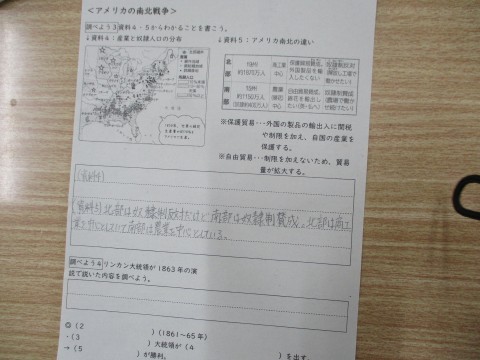 <アメリカの南北戦争>
調べよう3 資料4・5からわかることを書こう。
↓資料4:産業と奴隷人口の分布
↓資料5:アメリカ南北の違い
北部
19州
商工業中心
保護貿易賛成。
奴隷制反対
南部
11州
農業中心
自由貿易賛成。
奴隷制賛成
※保護貿易・・・外国の製品の輸出入に関税
や制限を加え、自国の産業を
保護する。
※自由貿易・・・制限を加えないため、貿易
量が拡大する。
(資料4)
(資料5)北部は奴隷制反対だけど南部は奴隷制賛成、北部は商工
業を中心としていて南部は農業を中心としている。
調べよう4 リンカン大統領が1863年の演
説で説いた内容を調べよう。
◎(2 )(1861~65年)
・(3 )大統領が(4 )を出す。
→(5 )が勝利。